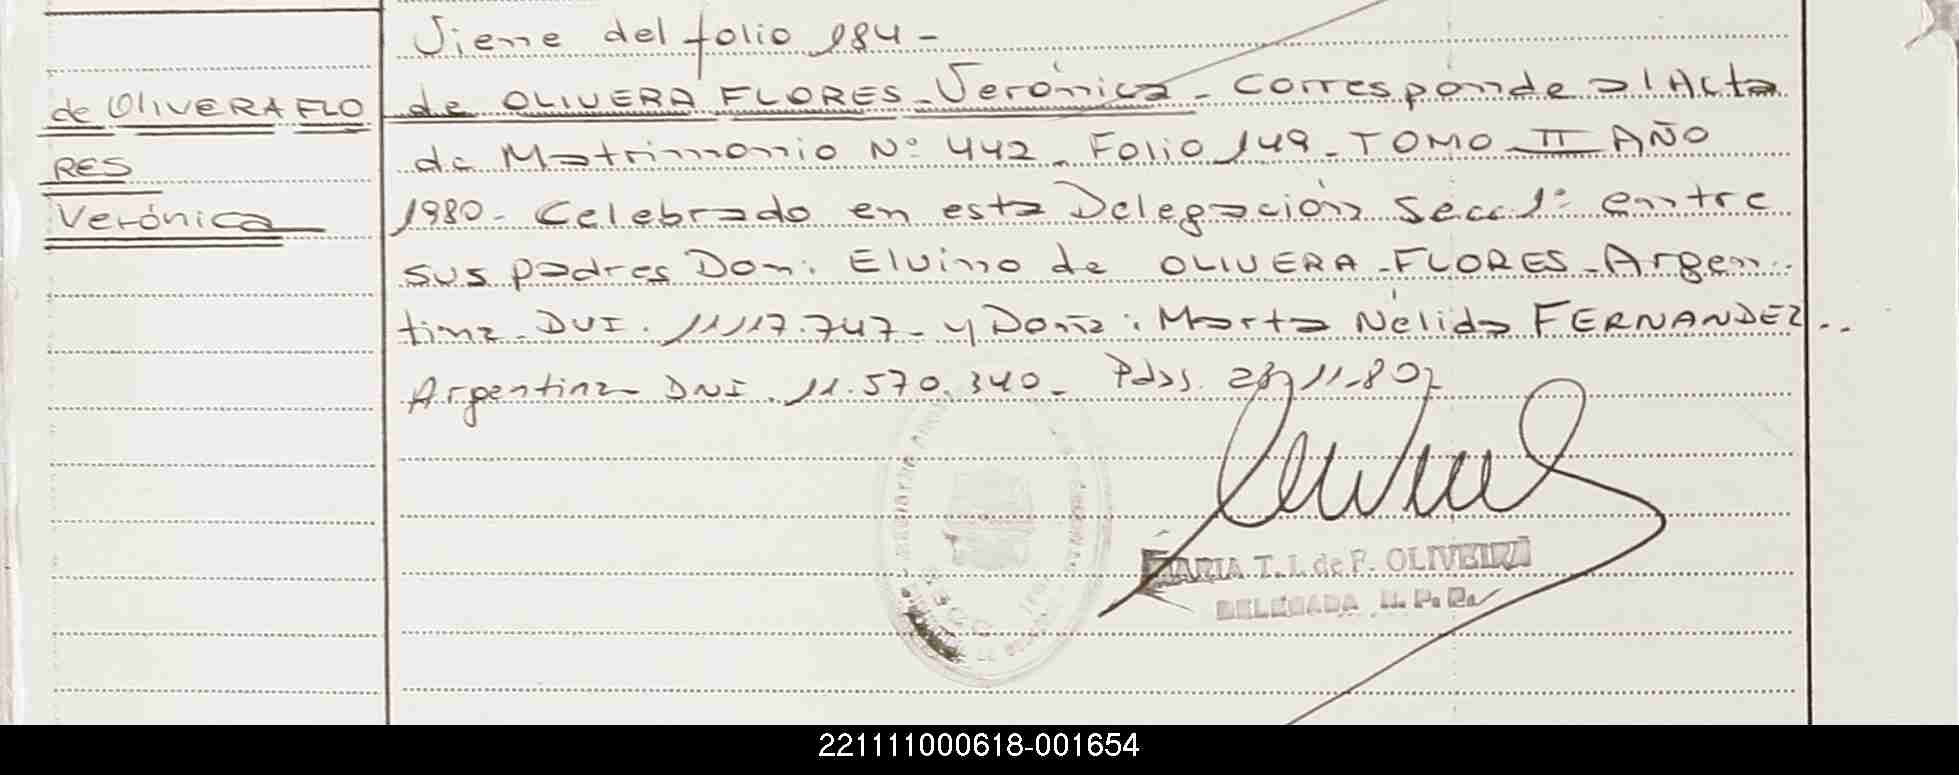 Viene del folio 184-
de OLIVERA FLO
RES
Verónica
de OLIVERA FLORES-Verónica- corresponde al Acta
de Matrimonio Nº 442- Folio 149- TOMO II AÑO
1980- Celebrado en esta Delegación Secc 1º entre
sus padres Don: Elvino de OLIVERA-FLORES-Argen-
tina- DNI. 11.117.747- y Doña: Marta Nélida FERNANDEZ-
Argentina DNI. 11.570.340- Pdas. 28-11-80
MARIA T. I. de P. OLIVEIRA
DELEGADA R. P. P.
221111000618-001654